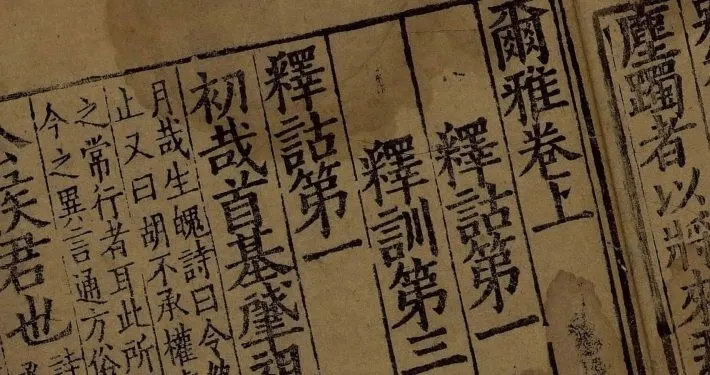 塵躅者以將來
爾雅卷上
釋詁第一
釋訓第三
釋詁第一
初哉首基肇祖
月哉生魄詩曰令
止又曰胡不承權
之常行者耳此所
今之異言通方俗
矦君也詩